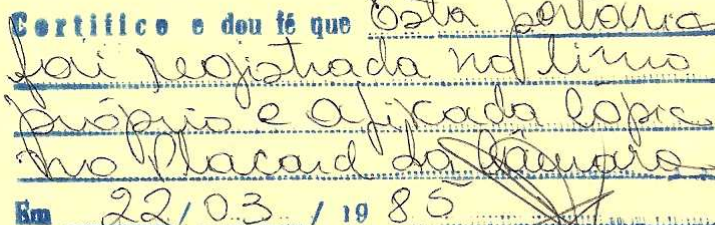 Certifico e dou fé que Esta portaria
foi registrada no livro
próprio e afixada cópia
no Placard da Câmara
Em 22/03/1985